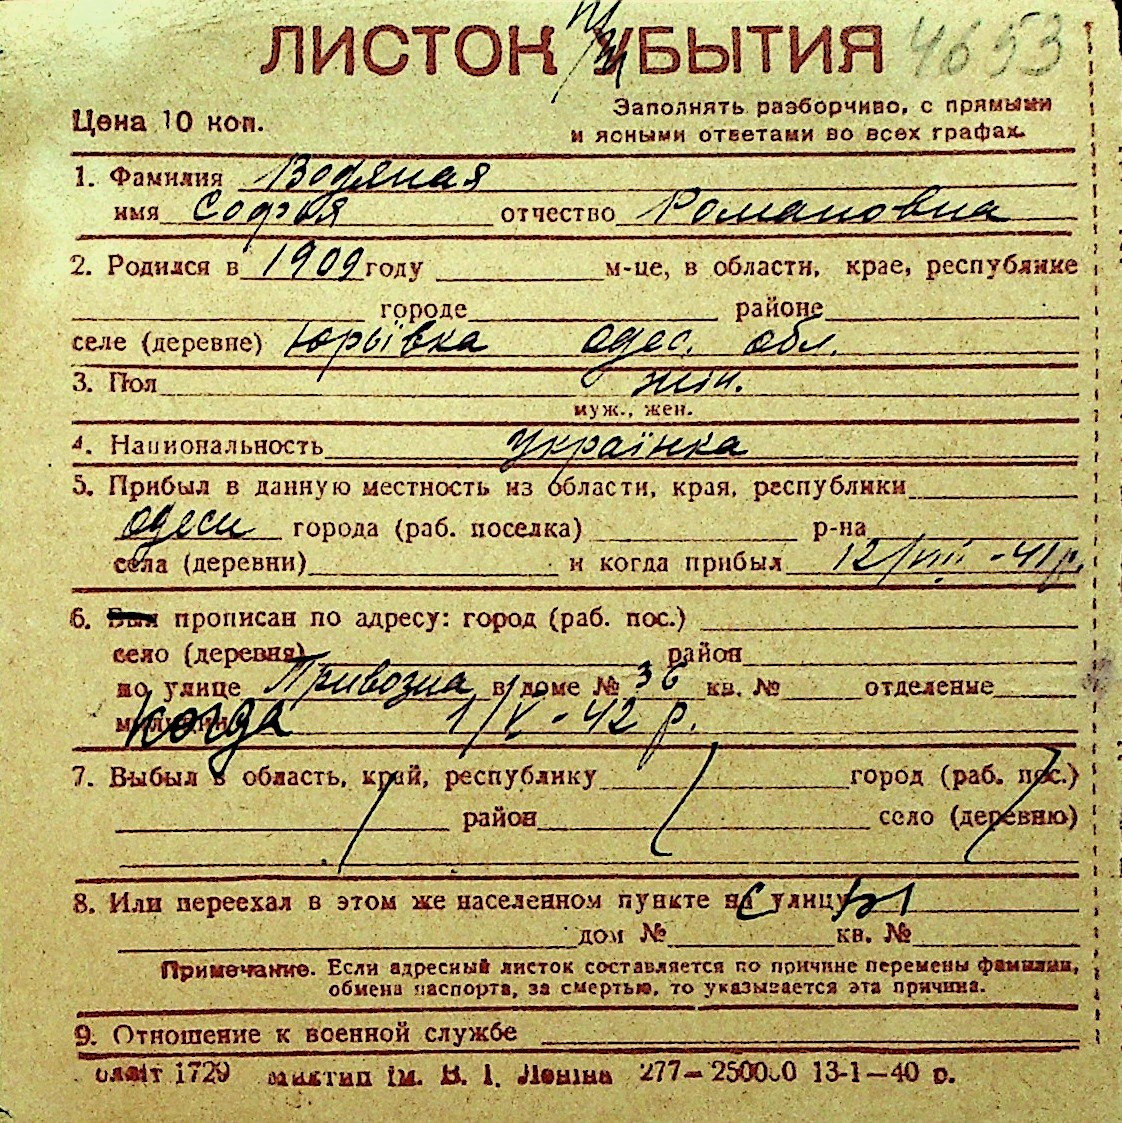 ЛИСТОК УБЫТИЯ 4653
Цена 10 коп.
Заполнять разборчиво, с прямыми
и ясными ответами во всех графах.
1. Фамилия Водяная
имя Софья отчество Романовна
2. Родился в 1909 году м-це, в области, крае, республике
городе районе
селе (деревне) Юрьївка одес. обл.
3. Пол жін.
муж., жен.
4. Национальность Українка
5. Прибыл в данную местность из области, края, республики
Одеси города (раб. поселка) р-на
села (деревни) и когда прибыл 12/VIII-41 р.
6. Был прописан по адресу: город (раб. пос.)
село (деревня) район
по улице Привозна в доме № 36 кв. № отделение
милиции Когда 1/V-42 р.
7. Выбыл в область, край, республику город (раб. пос.)
район село (деревню)
8. Или переехал в этом же населенном пункте на с улицу ы
дом № кв. №
Примечание. Если адресный листок составляется по причине перемены фамилии,
обмена паспорта, за смертью, то указывается эта причина.
9. Отношение к военной службе
1729 ім. В. І. Леніна 277—250000 13-1—40 р.